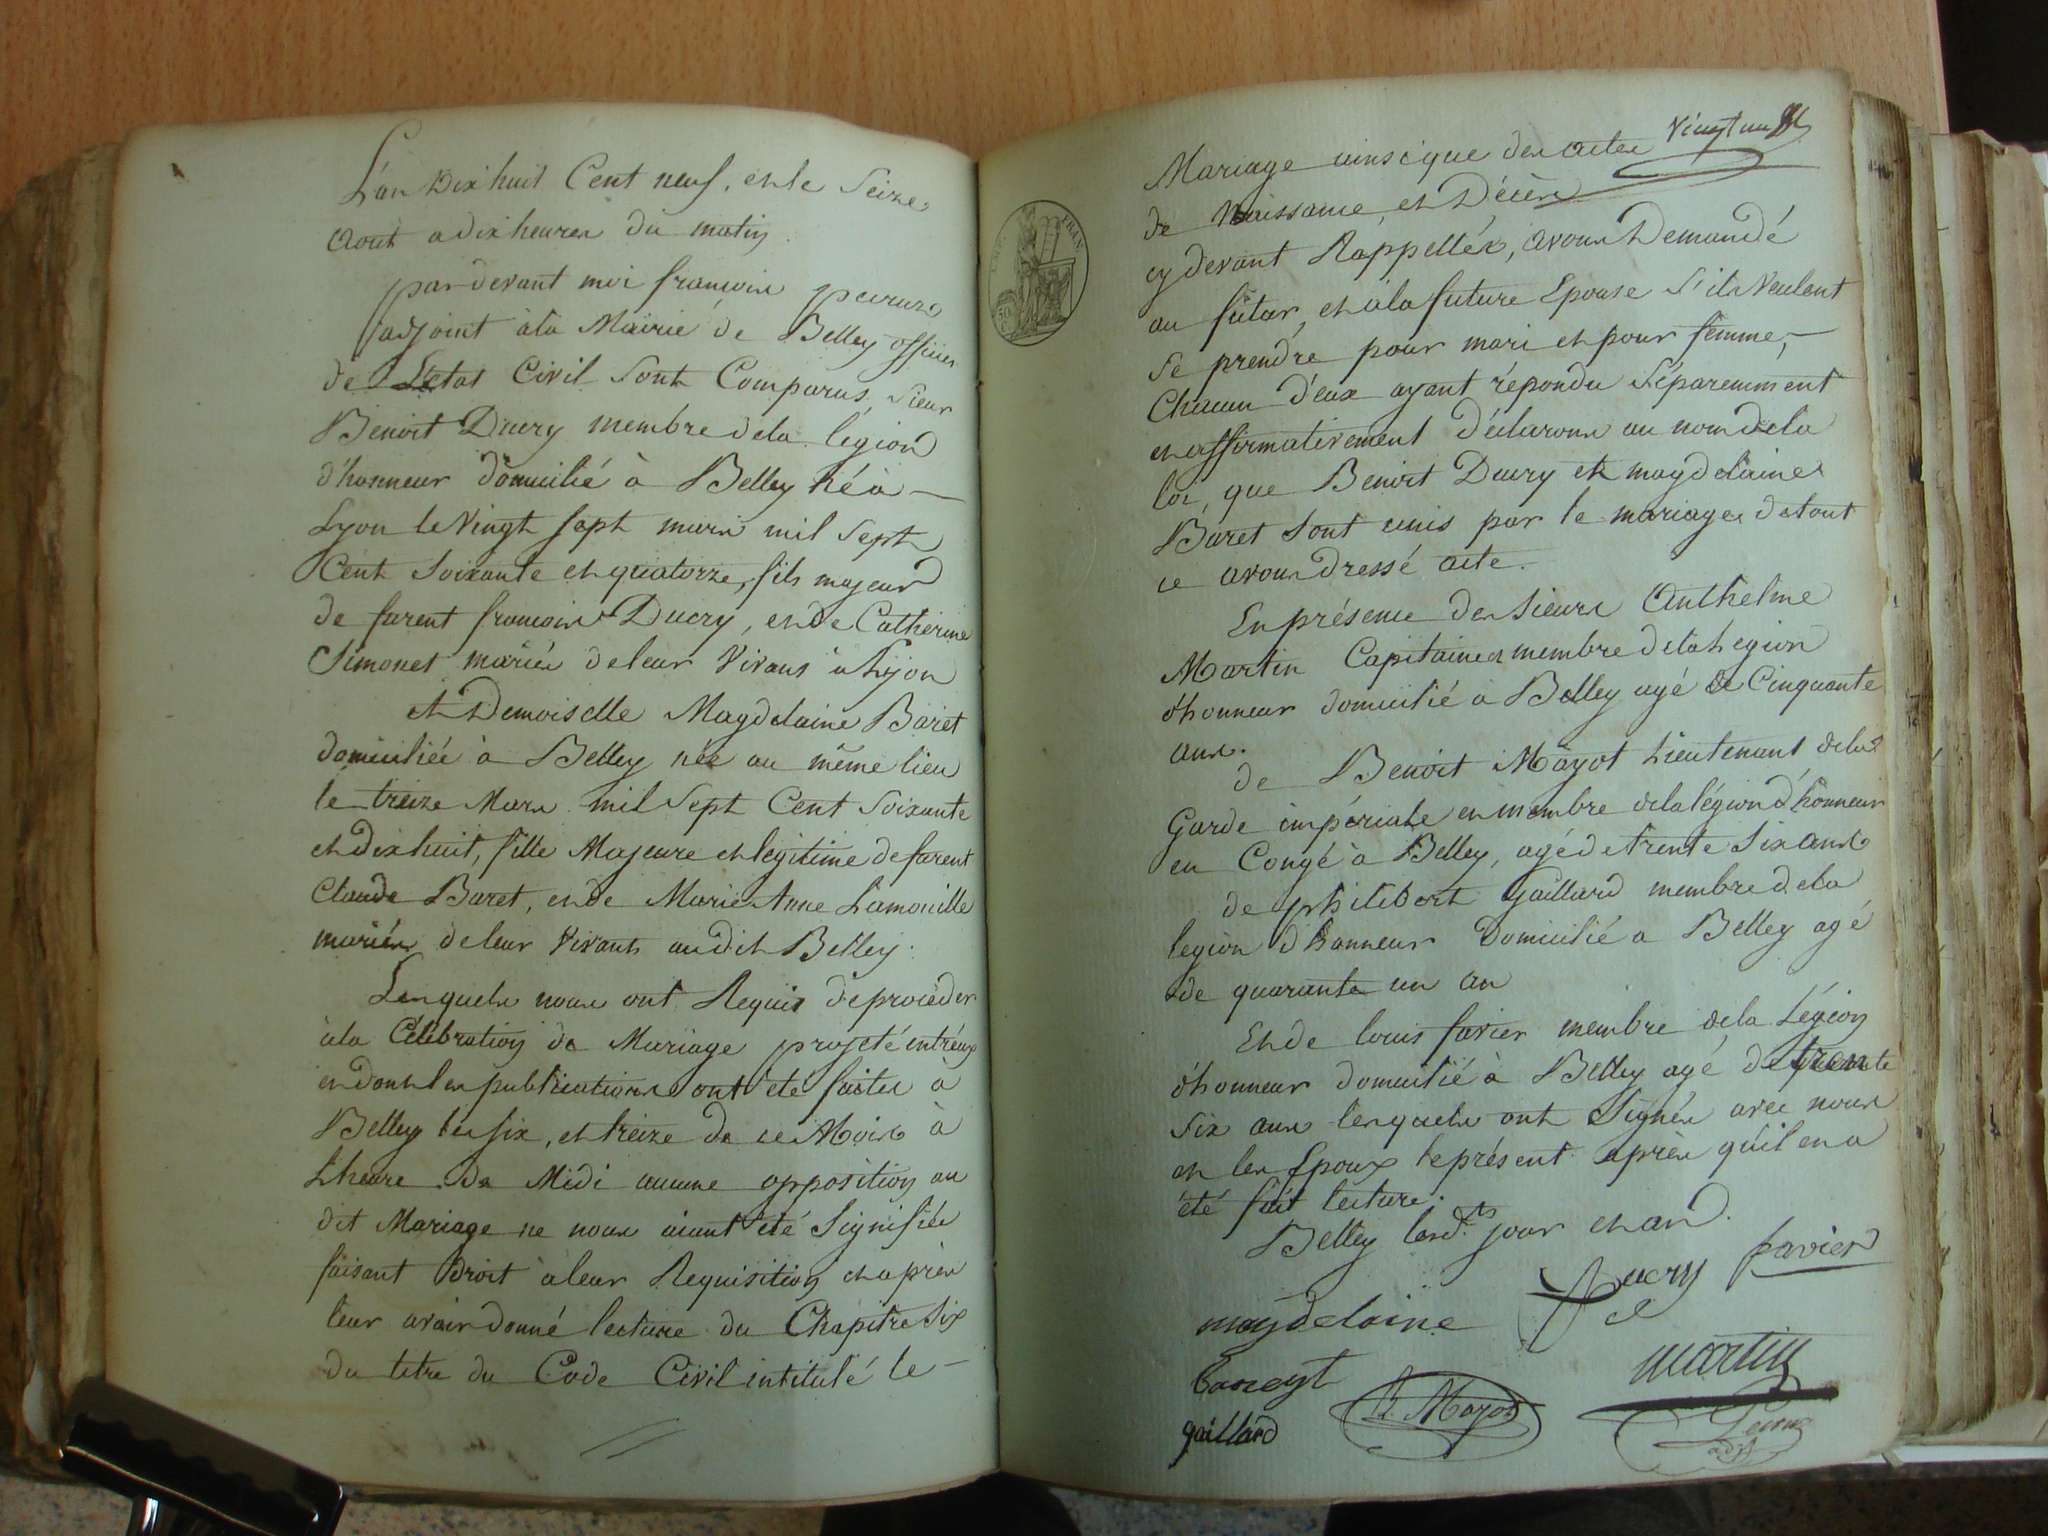 L'an Dix huit Cent neuf, et le Seize
Aout a dix heures du matin
par devant moi françois
adjoint à la Mairie de Belley officier
de L'etat Civil Sont Comparus, Sieur
Benoit Ducry membre de la légion
d'honneur domicilié à Belley Né à —
Lyon le Vingt Sept mars mil Sept
Cent Soixante et quatorze, fils majeur
de farent françois Ducry, et de Catherine
Simonet mariés de leur Vivans à Lyon
et Demoiselle Magdelaine Baret
domiciliée à Belley née au même lieu
le treize Mars mil Sept Cent Soixante
et dix huit, fille Majeure et legitime de farent
Claude Baret, et de Marie Anne Lamouille
mariés de leur Vivant au dit Belley.
Lesquels nous ont Requis de procéder
à la Célébration du Mariage projeté entr'eux
et dont les publications ont été faites à
Belley les six, et treize de ce Mois à
L'heure de Midi aucune opposition au
dit Mariage ne nous aiant été Signifiée
faisant Droit à leur Requisition et après
leur avoir donné lecture du Chapitre Six
du titre du Code Civil intitulé le —
Vingt un
Mariage ainsi que des actes
de Naissance, et Décès
cy devant Rappellés, avons Demandé
au futur, et à la future Epouse S'ils Veulent
Se prendre pour mari et pour femme, —
Chacun d'eux ayant répondu Séparemment
et affirmativement déclarons au nom de la
loi, que Benoit Ducry et magdelaine
Baret Sont unis par le mariage de tout
ce avons dressé acte.
En présence des Sieurs Anthelme
Martin Capitaine membre de la Legion
d'honneur domicilié à Belley agé de Cinquante
ans.
de Benoit Mayot Lieutenant de la
Garde impériale et membre de la légion d'honneur
en Congé à Belley, agé de trente Six ans
de philibert Gaillard membre de la
legion d'honneur Domicilié a Belley agé
de quarante un an
Et de louis favier membre de la Légion
d'honneur domicilié à Belley agé de trente
Six ans lesquels ont Signés avec nous
et les Epoux le présent après qu'il en a
été fait lecture.
Belley les d.ts jour et an.
Ducry favier
magdelaine
martin
bareyt
B. Mayot
gaillard
adjt